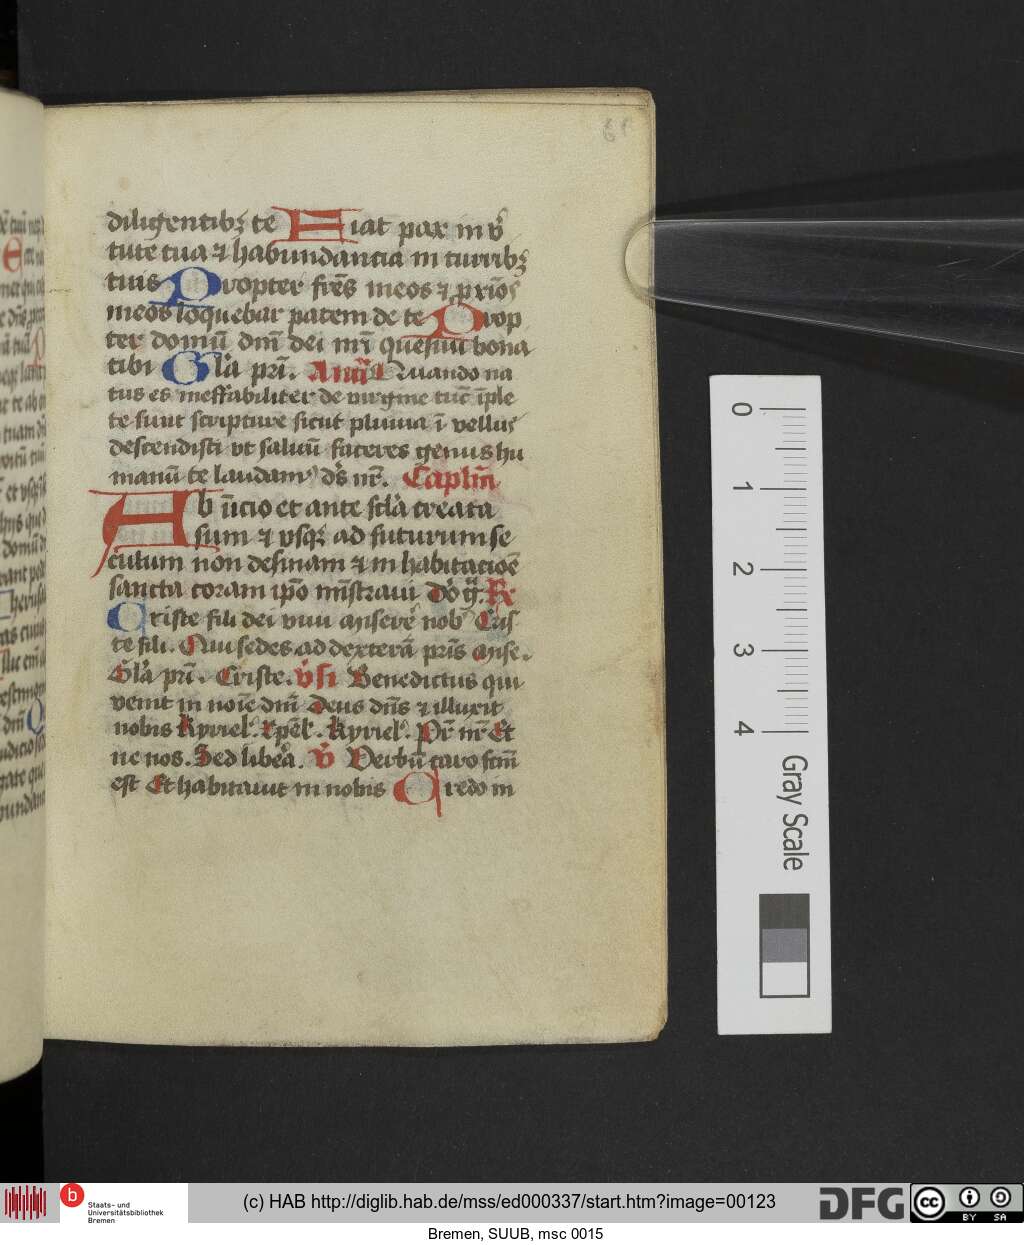 61
diligentibꝫ te Fiat pax in vͥ
tute tua ⁊ habundancia in turribꝫ
tuis Propter frēs meos ⁊ pxīoſ
meos loquebar pacem de te Prop
ter domū dnī dei nrī quesiui bona
tibi Glā prī. Quando na
tus es ineffabiliter de virgine tūc īple
te sunt scripture sicut pluuia ī vellus
descendisti vt saluū faceres genus hu
manū te laudamꝰ dꝰs nr̄. Captm̄
Ab īicio et ante sclā creata
sum ⁊ vsqꝫ ad futurum se
culum non desinam ⁊ in habitacōe
sancta coram ipō mīstraui Dō g̅. R
Criste fili dei viui miserē nobꝰ Cris
te fili. Qui sedes ad dexterā prīs mise.
Glā prī. Criste. vſı Benedictus qui
venit in noīe dnī Deus dn̄s ⁊ illuxit
nobis kyriel'. xp̄el'. kyriel'. Pr̄ nr̄ Et
ne nos. Sed libeā. v Verbū caro fcm̄
est Et habitauit in nobis Credo in
0
1
2
3
4
Gray Scale
b Staats- und
Universitätsbibliothek
Bremen
(c) HAB http://diglib.hab.de/mss/ed000337/start.htm?image=00123
DFG
cc BY SA
Bremen, SUUB, msc 0015